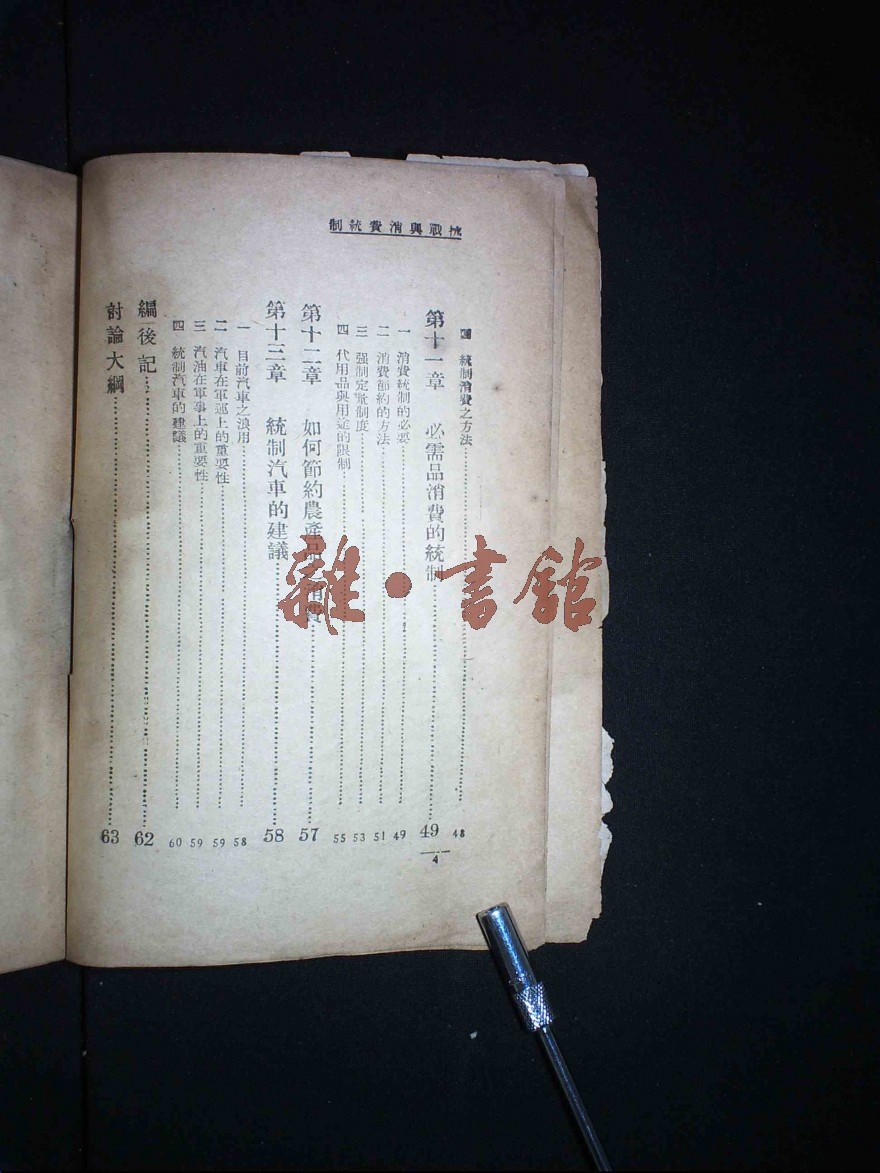 抗戰與消費統制
四 統制消費之方法……48
第十一章 必需品消費的統制……49
一 消費統制的必要……49
二 消費節約的方法……51
三 强制定量制度……53
四 代用品與用途的限制……55
第十二章 如何節約農產品之消費……57
第十三章 統制汽車的建議……58
一 目前汽車之浪用……58
二 汽車在軍運上的重要性……59
三 汽油在軍事上的重要性……59
四 統制汽車的建議……60
編後記……62
討論大綱……63
4
雜·書館